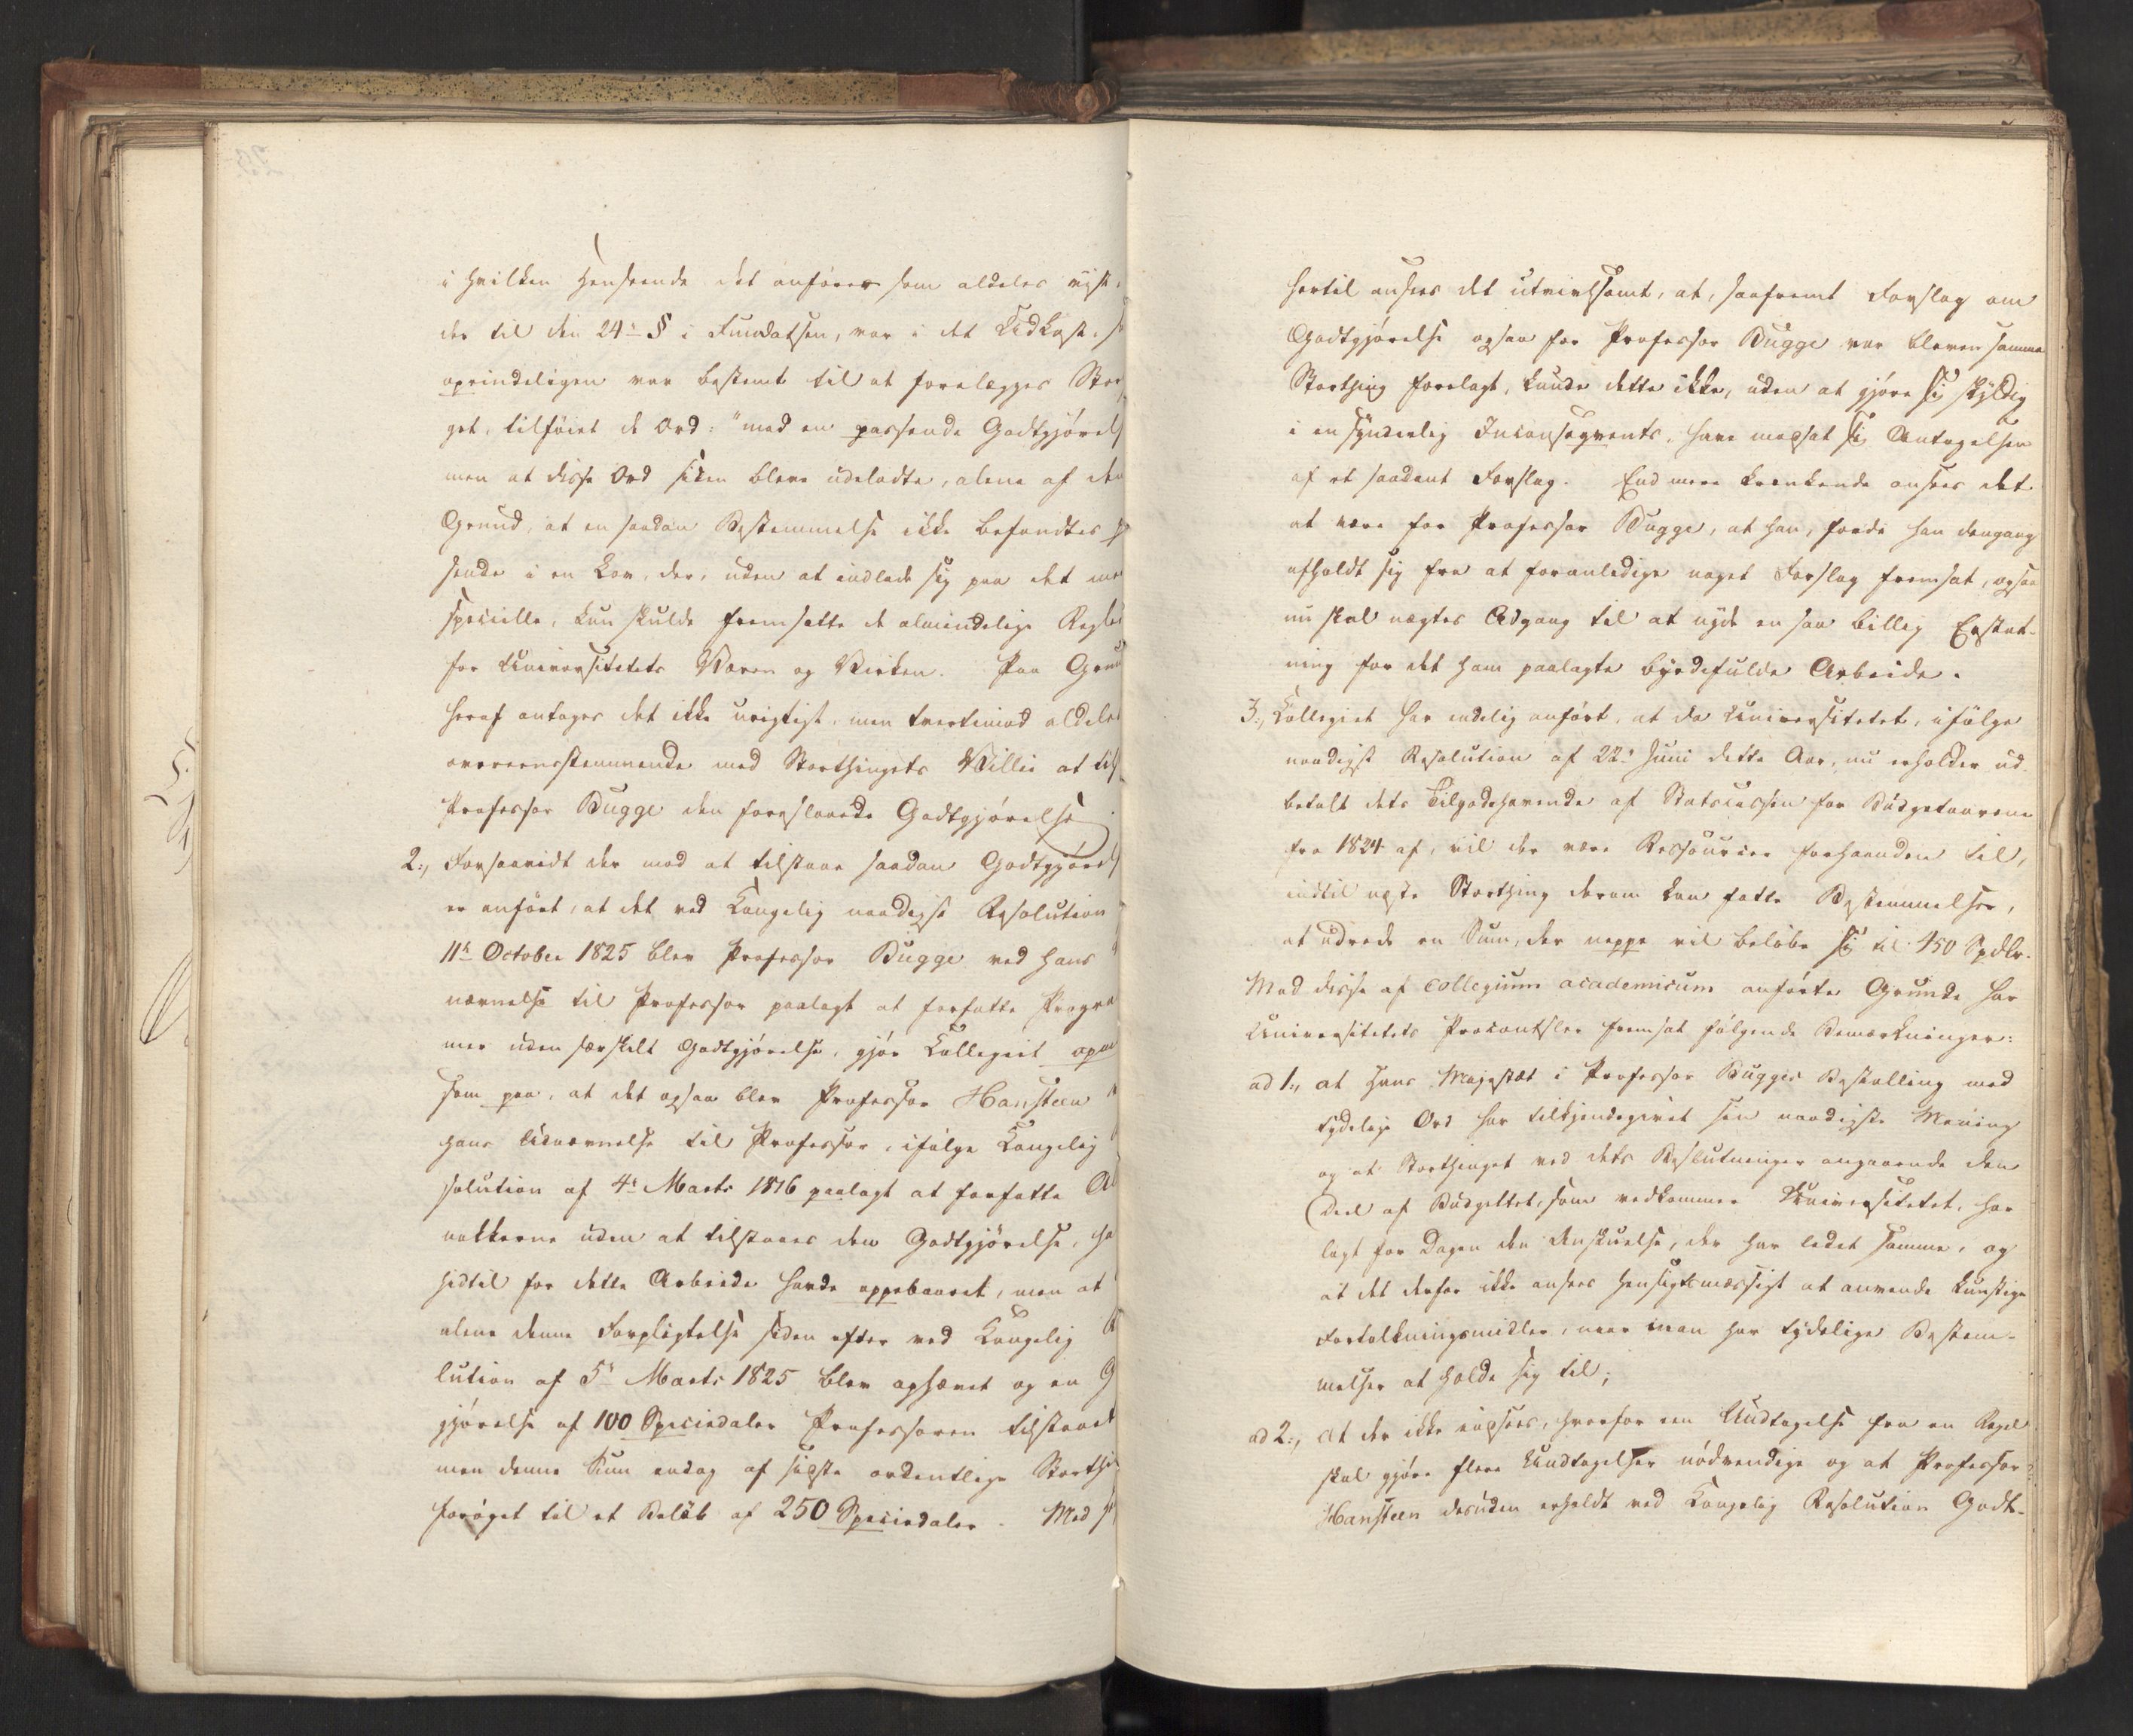 i hvilken Henseende det anføres som aldeles vist,
der til den 24de § i Fundatsen, var i det Udkast, s
oprindeligen var bestemt til at forelægges Stor
get, tilføiet de Ord: "med en passende Godtgjørels
men at disse Ord siden bleve udeladte, alene af den
Grund, at en saadan Bestemmelse ikke befandtes p
sende i en Lov, der, uden at indlade sig paa det me
specielle, kun skulde fremsætte de almindelige Regler
for Universitetets Væren og Virken. Paa Grund
heraf antages det ikke urigtigt, men tvertimod aldeles
overeensstemmende med Storthingets Villie at til
Professor Bugge den foreslaaede Godtgjørelse
2., Forsaavidt der mod at tilstaae saadan Godtgjørels
er anført, at det ved Kongelig naadigst Resolution
11te October 1825 blev Professor Bugge ved hans
nævnelse til Professor paalagt at forfatte Progra
mer uden særskilt Godtgjørelse, gjør Collegiet opm
som paa, at det ogsaa blev Professor Hansteen
hans Udnævnelse til Professor, ifølge Kongelig
solution af 4de Marts 1816 paalagt at forfatte Al
nakkerne uden at tilstaaes den Godtgjørelse, ha
hidtil for dette Arbeide havde oppebaaret, men at
alene denne Forpligtelse siden efter ved Kongelig
lution af 5te Marts 1825 blev ophævet og en G
gjørelse af 100 Speciedaler Professoren tilstaaet
men denne Sum endog af sidste ordentlige Storthi
forøget til et Beløb af 250 Speciedaler. Med
hertil ansees det utvivlsomt, at, saafremt Forslag om
Godtgjørelse ogsaa for Professor Bugge var bleven samme
Storthing forelagt, kunde dette ikke, uden at gjøre sig skyldig
i en synderlig Inconseqvents, have modsat sig Antagelsen
af et saadant Forslag. End mere krænkende ansees det
at være for Professor Bugge, at han, fordi han dengang
afholdt sig fra at foranledige noget Forslag fremsat, ogsaa
nu skal nægtes Adgang til at nyde en saa billig Erstat-
ning for det ham paalagte byrdefulde Arbeide.
3., Collegiet har endelig anført, at da Universitetet, ifølge
naadigst Resolution af 22de Juni dette Aar, nu erholder ud-
betalt dets Tilgodehavende af Statscassen for Budgetaarene
fra 1824 af, vil der være Ressourcer forhaanden til,
indtil næste Storthing derom kan fatte Bestemmelse,
at udrede en Sum, der neppe vil beløbe sig til 150 Spdlr.
Mod disse af collegium academicum anførte Grunde har
Universitetets Procantsler fremsat følgende Bemærkninger:
ad 1., at Hans Majestæt i Professor Bugges Bestalling med
tydelige Ord har tilkjendegivet sin naadigste Mening
og at Storthinget ved dets Beslutninger angaaende den
Deel af Budgettet, som vedkommer Universitetet, har
lagt for Dagen den Anskuelse, der har ledet samme, og
at det derfor ikke ansees hensigtsmæssigt at anvende kunstige
Fortolkningsmidler, naar man har tydelige Bestem-
melser at holde sig til;
ad 2., at der ikke indsees, hvorfor een Undtagelse fra en Regel
skal gjøre flere Undtagelser nødvendige og at Professor
Hansteen desuden erholdt ved Kongelig Resolution Godt-